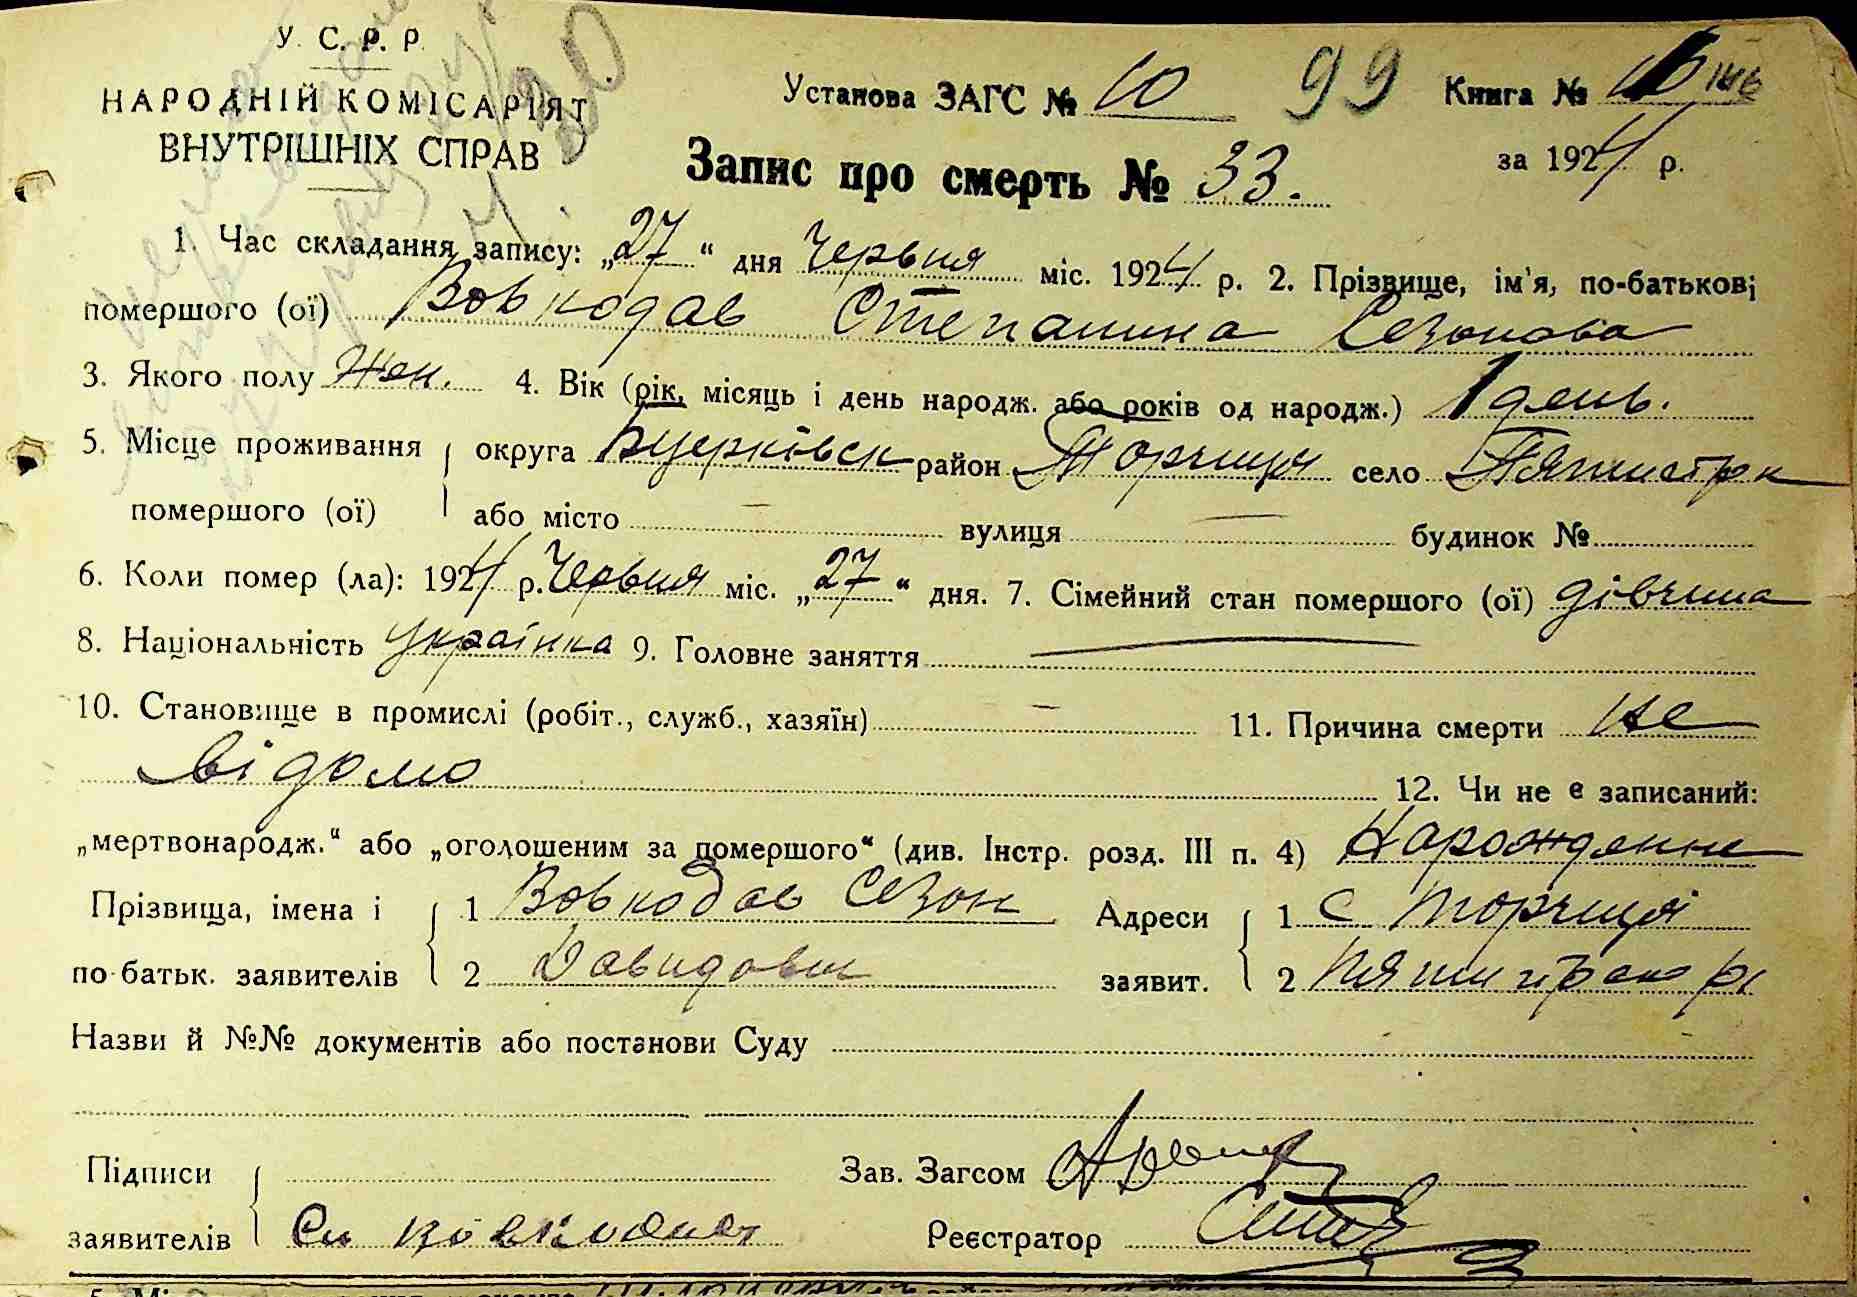 У. С. Р. Р.
НАРОДНІЙ КОМІСАРІЯТ
ВНУТРІШНІХ СПРАВ
Установа ЗАГС № 10 99 Книга №
Запис про смерть № 33. за 1924 р.
1. Час складання запису: „27“ дня Червня міс. 1924 р. 2. Прізвище, ім'я, по-батькові
помершого (ої) Вовкодав Степанина Сезонова
3. Якого полу Жен. 4. Вік (рік, місяць і день народж. або років од народж.) 1 день.
5. Місце проживання округа Бцерківск район Торчиця село
помершого (ої) або місто — вулиця — будинок №
6. Коли помер (ла): 1924 р. Червня міс. „27“ дня. 7. Сімейний стан помершого (ої) дівчина
8. Національність Українка 9. Головне заняття —
10. Становище в промислі (робіт., служб., хазяїн) — 11. Причина смерти не
відомо
12. Чи не є записаний:
„мертвонародж.“ або „оголошеним за помершого“ (див. Інстр. розд. III п. 4)
Прізвища, імена і 1 Вовкодав Сезон Адреси 1 с Торчиця
по-батьк. заявителів 2 Давидович заявит. 2
Назви й №№ документів або постанови Суду
Підписи Зав. Загсом
заявителів Реєстратор